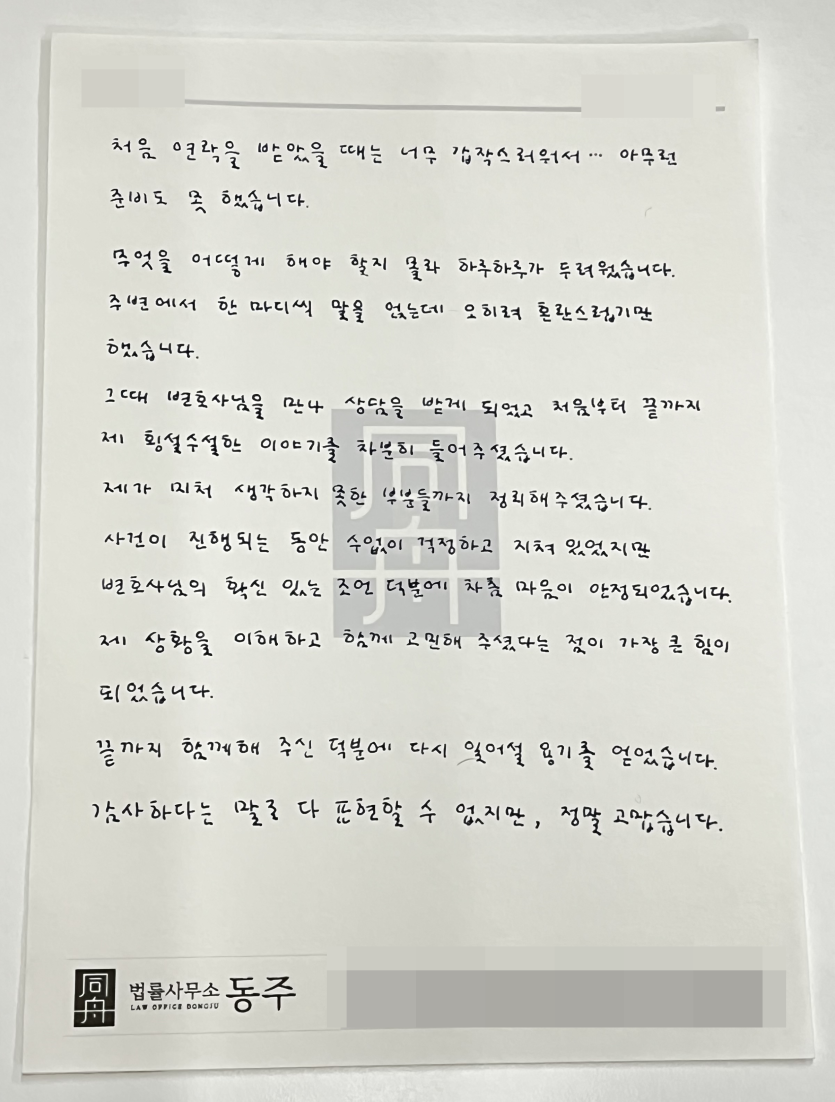 처음 연락을 받았을 때는 너무 갑작스러워서… 아무런
준비도 못 했습니다.
무엇을 어떻게 해야 할지 몰라 하루하루가 두려웠습니다.
주변에서 한 마디씩 말을 얹는데 오히려 혼란스럽기만
했습니다.
그때 변호사님을 만나 상담을 받게 되었고 처음부터 끝까지
제 횡설수설한 이야기를 차분히 들어주셨습니다.
제가 미처 생각하지 못한 부분들까지 정리해주셨습니다.
사건이 진행되는 동안 수없이 걱정하고 지쳐 있었지만
변호사님의 확신 있는 조언 덕분에 차츰 마음이 안정되었습니다.
제 상황을 이해하고 함께 고민해 주셨다는 점이 가장 큰 힘이
되었습니다.
끝까지 함께해 주신 덕분에 다시 일어설 용기를 얻었습니다.
감사하다는 말로 다 표현할 수 없지만, 정말 고맙습니다.
同舟
同舟 법률사무소 동주
LAW OFFICE DONGJU